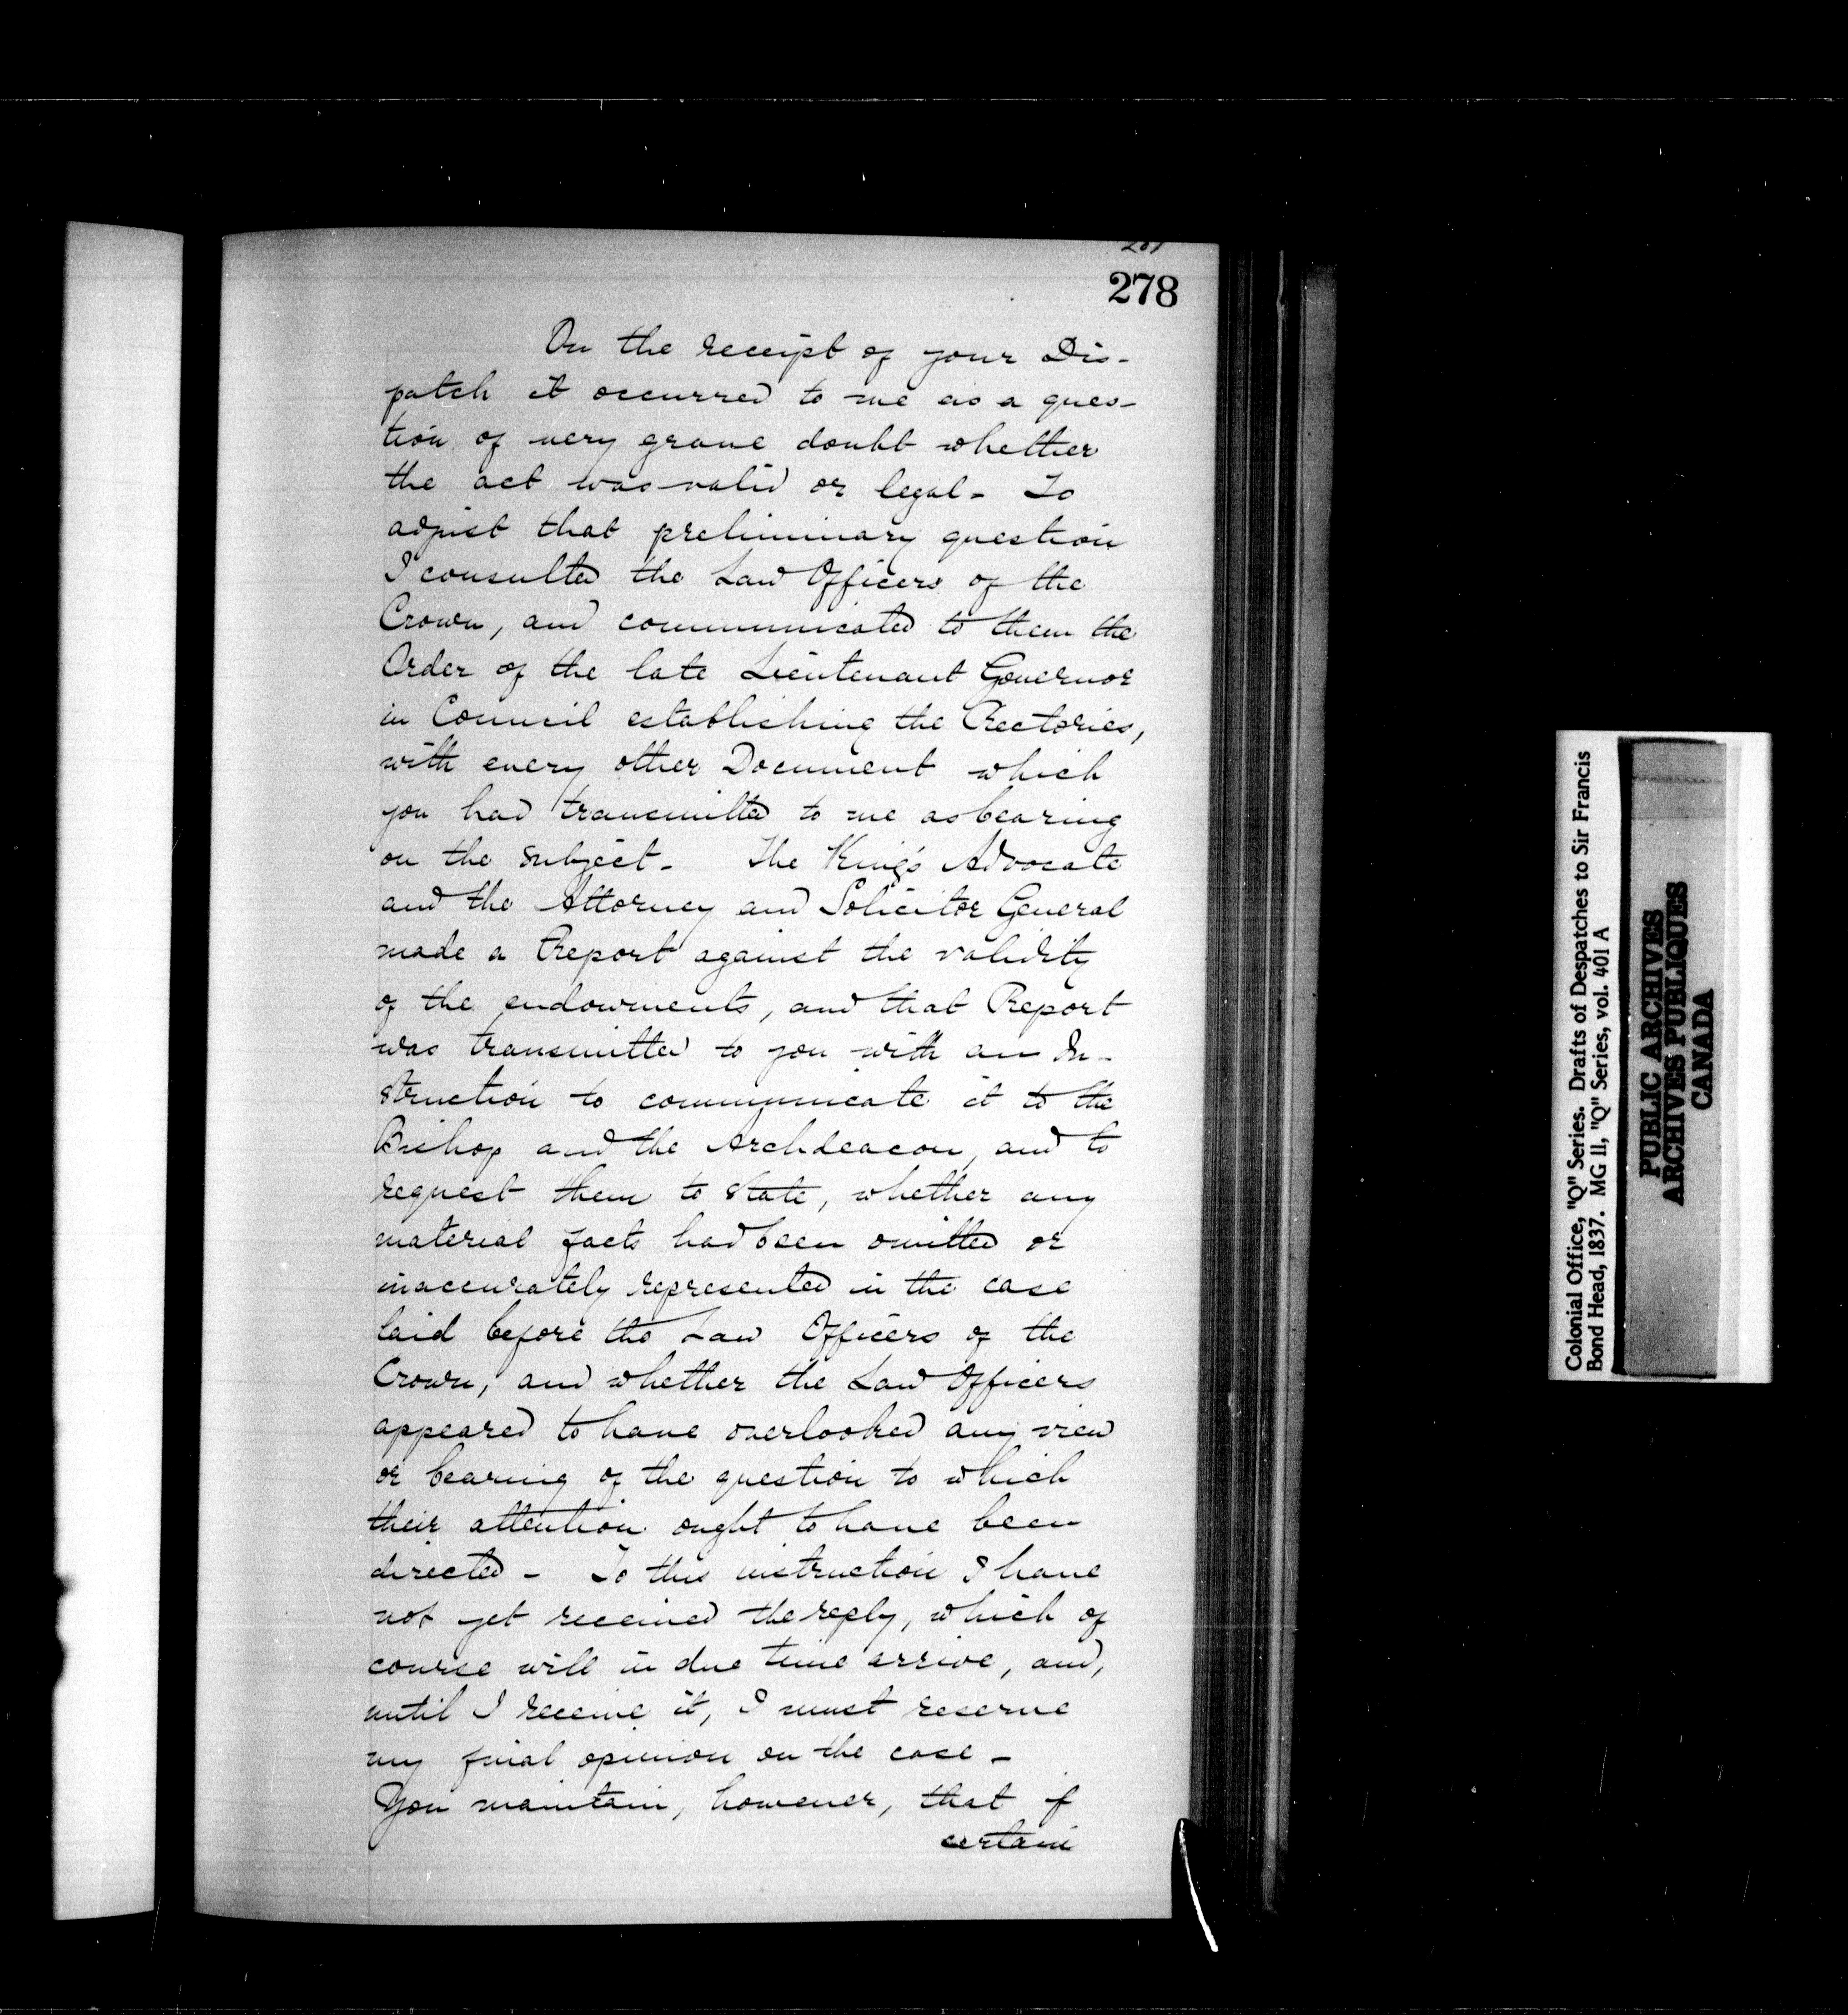 278
On the receipt of your Dis-
patch it occurred to me as a ques-
tion of very grave doubt whether
the act was valid or legal - To
adjust that preliminary question
I consulted the Law Officers of the
Crown, and communicated to them the
Order of the late Lieutenant Governor
in Council establishing the Rectories,
with every other Document which
you had transmitted to me as bearing
on the subject - The King's Advocate
and the Attorney and Solicitor General
made a Report against the validity
of the endowments, and that Report
was transmitted to you with an In-
struction to communicate it to the
Bishop and the Archdeacon, and to
request them to state, whether any
material facts had been omitted or
inaccurately represented in the case
laid before the Law Officers of the
Crown, and whether the Law Officers
appeared to have overlooked any view
or bearing of the question to which
their attention ought to have been
directed - To this instruction I have
not yet received the reply, which of
course will in due time arrive, and,
until I receive it, I must reserve
my final opinion on the case -
You maintain, however, that if
certain
Colonial Office, "Q" Series. Drafts of Despatches to Sir Francis
Bond Head, 1837. MG 11, "Q" Series, vol. 401 A
PUBLIC ARCHIVES
ARCHIVES PUBLIQUES
CANADA